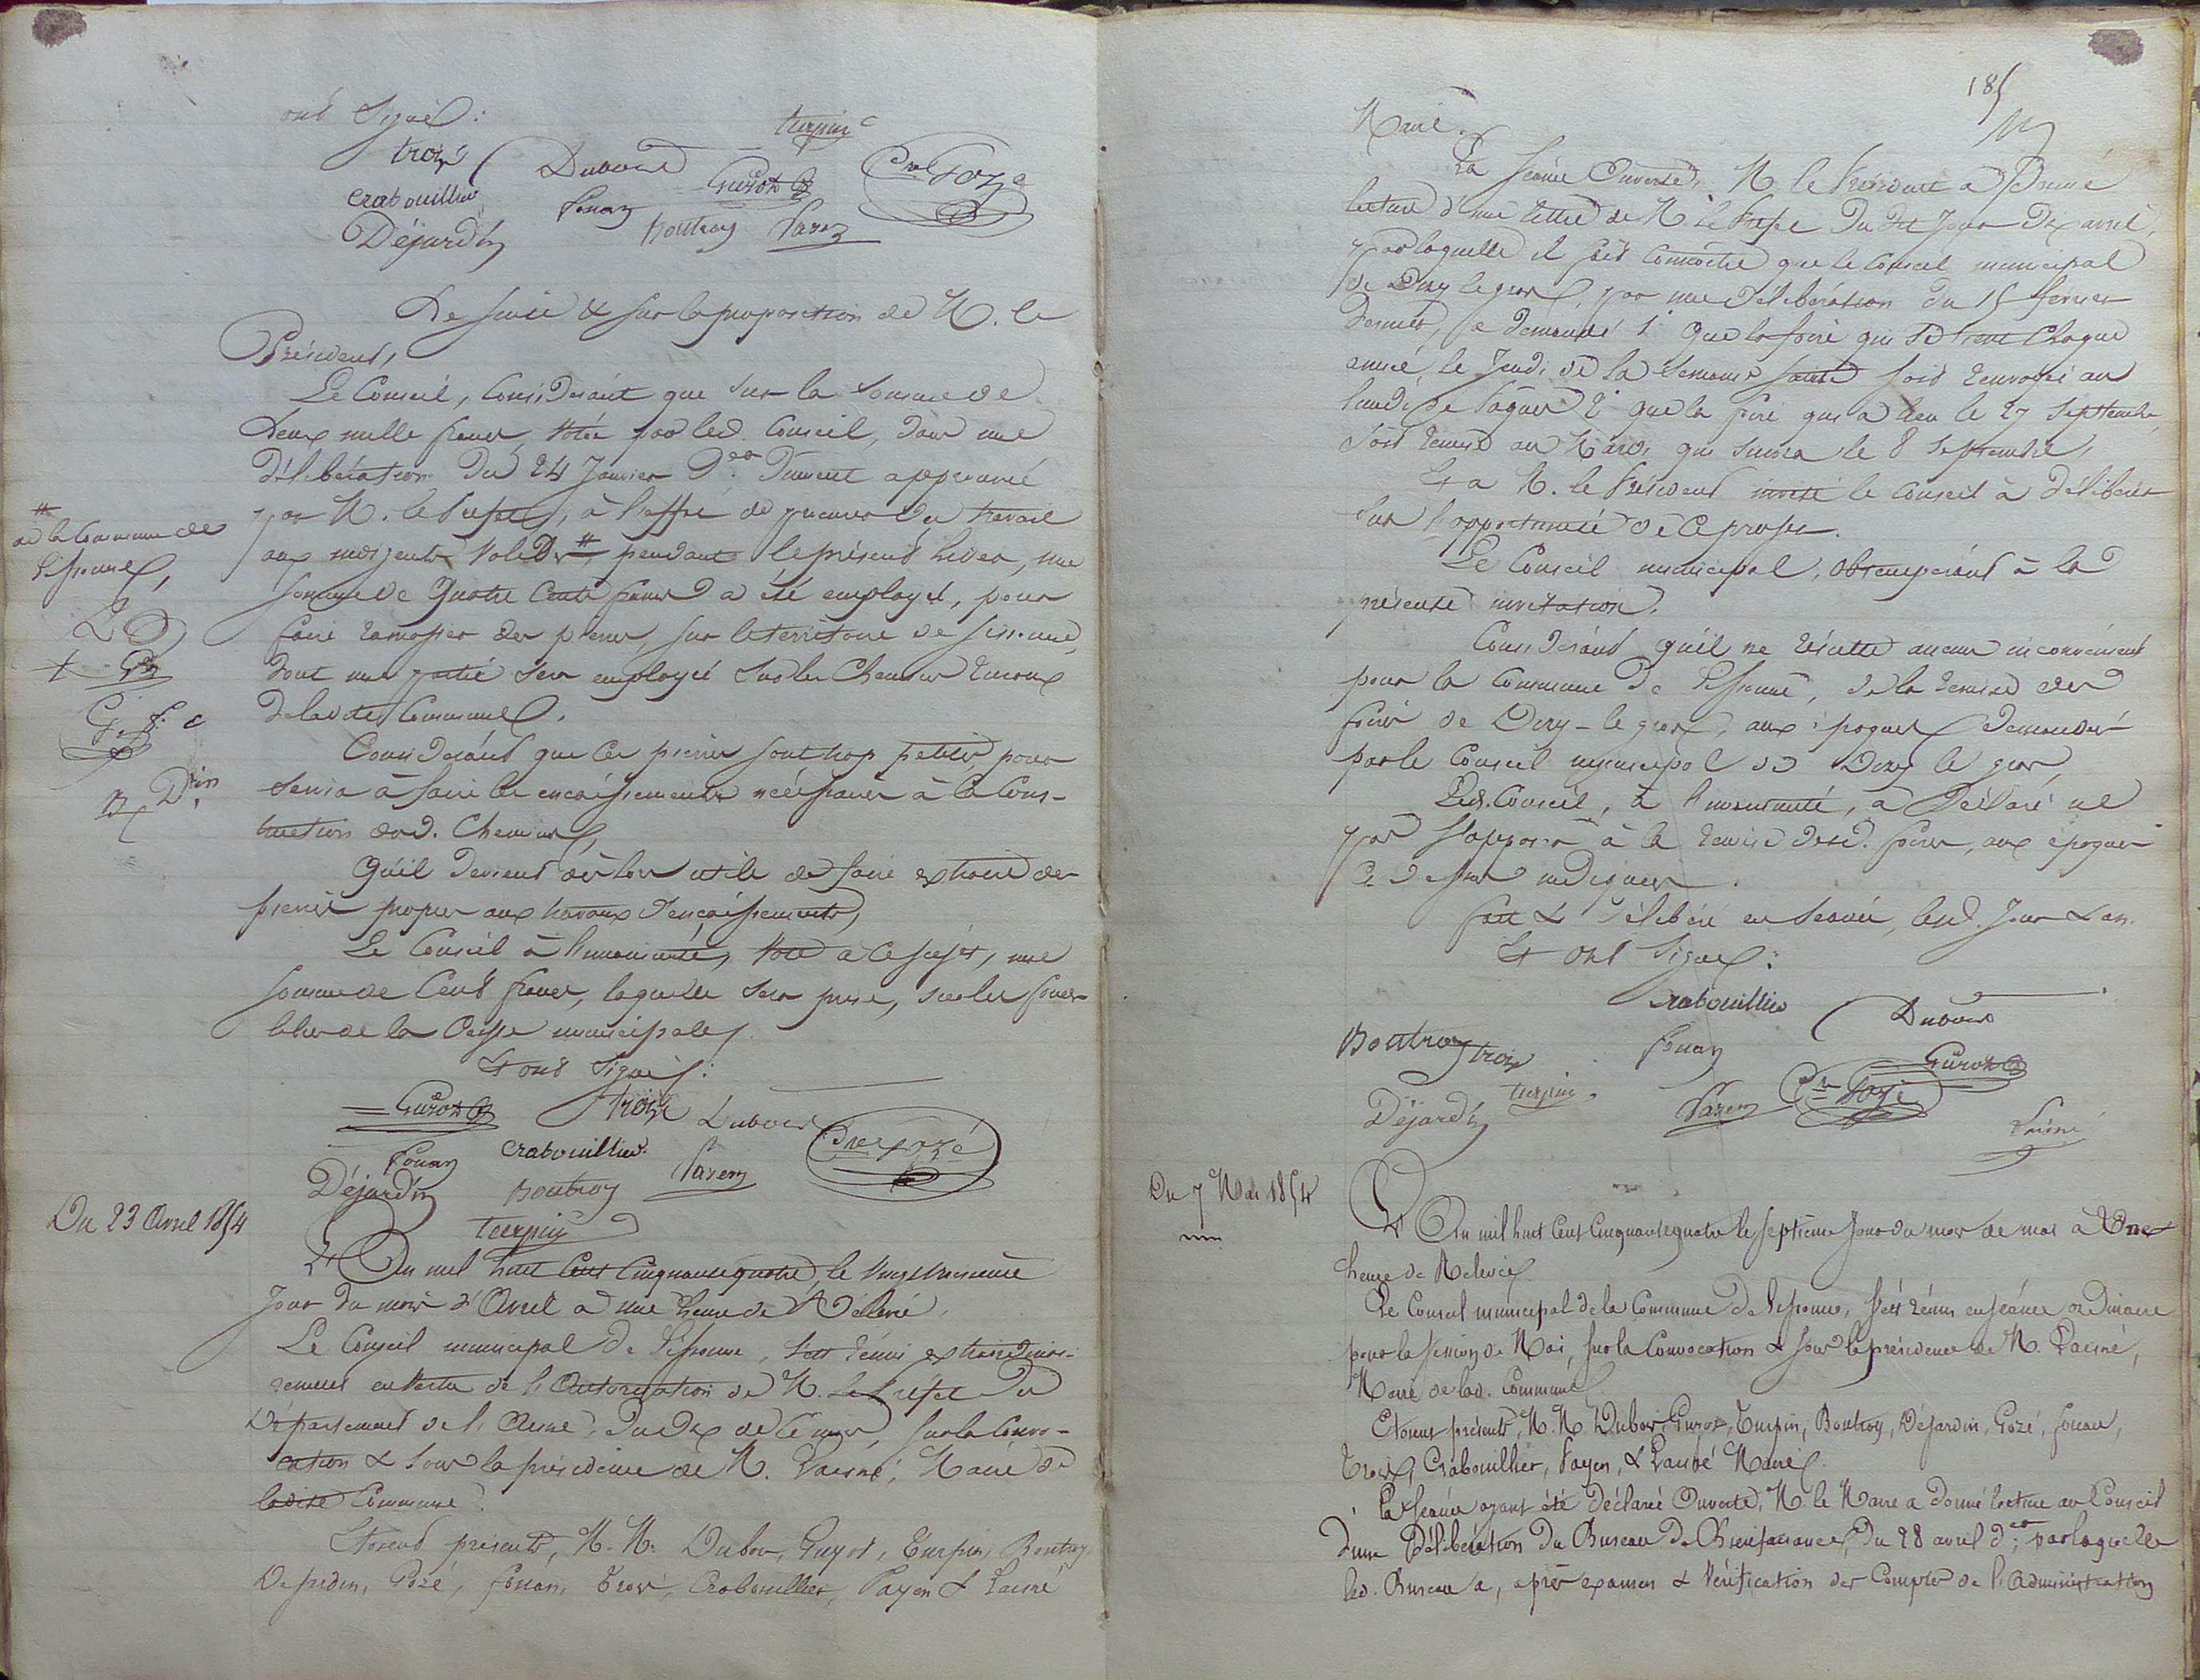 ont signé :
turpin
troix Dubois Guyot Cre Gozé
Crabouillier fouan Boutroy Payen
Déjardin
De suite & sur la proposition de M. le
Président,
Le Conseil, Considérant que sur la somme de
deux mille francs, votée par led. Conseil, dans une
délibération du 24 Janvier der dument approuvée
par M. le Préfet, à l'effet de procurer du travail
aux indigents valides # pendant le présent hiver, une
somme de quatre Cents francs a été employée, pour
faire ramasser des pierres, sur le territoire de Sissonne,
dont une partie sera employée sur les Chemins ruraux
de ladite Commune.
# de la Commune de
Sissonne,
Considérant que ces pierres sont trop petites pour
servir à faire les encaissements nécessaires à la Cons-
truction desd. Chemins,
Qu'il devient dès lors utile de faire extraire des
pierres propres aux travaux d'encaissements,
Le Conseil à l'unanimité, vote à ce sujet, une
somme de Cent francs, laquelle sera prise, sur les fonds
libres de la Caisse municipale.
Et ont signé :
Guyot troix Dubois
fouan Crabouillier Payen Cre Gozé
Déjardin Boutroy
Turpin
Du 23 Avril 1854
L'An mil huit Cent Cinquante quatre, le vingt troisième
Jour du mois d'Avril à une heure de Relevée,
Le Conseil municipal de Sissonne, s'est réuni extraordinai-
rement en vertu de l'Autorisation de M. le Préfet du
Département de l'Aisne, du dix de ce mois, sur la Convo-
cation & sous la présidence de M. Lainé, Maire de
ladite Commune.
Etaient présents, M. M. Dubois, Guyot, Turpin, Boutroy,
Déjardin, Gozé, fouan, Troix, Crabouillier, Payen & Lainé
185
Maire.
La séance Ouverte, M. le Président a donné
lecture d'une lettre de M. le Préfet du dit Jour dix avril,
par laquelle il fait Connaître que le Conseil municipal
de Dizy le gros, par une délibération du 15 février
dernier, a demandé 1° Que la foire qui se tient Chaque
année, le Jeudi de la Semaine Sainte soit renvoyée au
lundi de Pâques 2° que la foire qui a lieu le 27 Septembre
soit remise au Mardi qui suivra le 8 septembre,
Et a M. le Président invité le Conseil à délibérer
sur l'opportunité de ce projet.
Le Conseil municipal, obtempérant à la
présente invitation,
Considérant qu'il ne résulte aucun inconvénient
pour la Commune de Sissonne, de la remise des
foires de Dizy-le gros, aux époques demandées
par le Conseil municipal de Dizy le gros,
Led. Conseil, à l'unanimité, a Déclaré ne
pas s'opposer à la remise desd. foires, aux époques
Ci dessus indiquées.
fait & délibéré en séance, lesd. Jour & an.
Et ont signé :
Crabouillier Dubois
Boutroy troix fouan Guyot
Déjardin turpin Payen Cre Gozé
Lainé
Du 7 Mai 1854
L'An mil huit Cent Cinquante quatre le septième Jour du mois de mai à Une
heure de Relevée
Le Conseil municipal de la Commune de Sissonne, s'est réuni en séance ordinaire
pour la session de Mai, sur la Convocation & sous la présidence de M. Lainé,
Maire de lad. Commune
Etaient présents, M. M. Dubois, Guyot, Turpin, Boutroy, Déjardin, Gozé, fouan,
Troix, Crabouillier, Payen, & Lainé Maire.
La séance ayant été déclarée Ouverte, M. le Maire a donné lecture au Conseil
d'une Délibération du Bureau de Bienfaisance, du 28 avril der, par laquelle
led. Bureau a, après examen & Vérification des Comptes de l'Administration